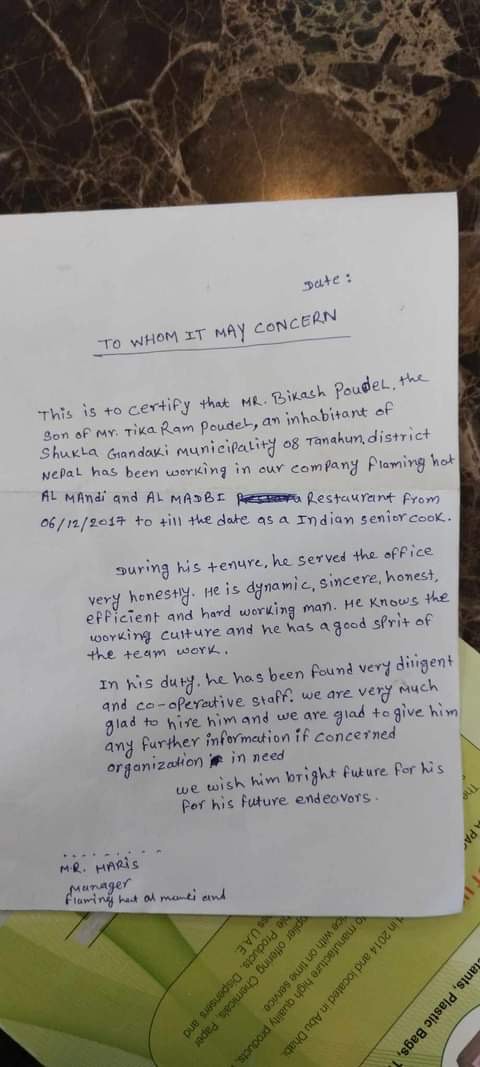 Date:
TO WHOM IT MAY CONCERN
This is to certify that MR. Bikash Poudel, the
Son of Mr. Tika Ram Poudel, an inhabitant of
Shukla Gandaki Municipality 08 Tanahun, district
Nepal has been working in our company flaming hot
AL MAndi and AL MADBI Restaurant from
06/12/2017 to till the date as a Indian senior cook.
During his tenure, he served the office
very honestly. He is dynamic, sincere, honest,
efficient and hard working man. He knows the
working culture and he has a good sprit of
the team work.
In his duty. he has been found very diligent
and co-operative staff. we are very much
glad to hire him and we are glad to give him
any further information if concerned
organization in need
we wish him bright future for his
for his future endeavors.
MR. HARIS
Manager
Flaming hot al and
d in 2014 and located in Abu Dhabi
to manufacture high quality products,
ice with on time service
pplier offering Chemicals, Paper
Products, Dispensers and
U.A.E.
tants, Plastic Bags,